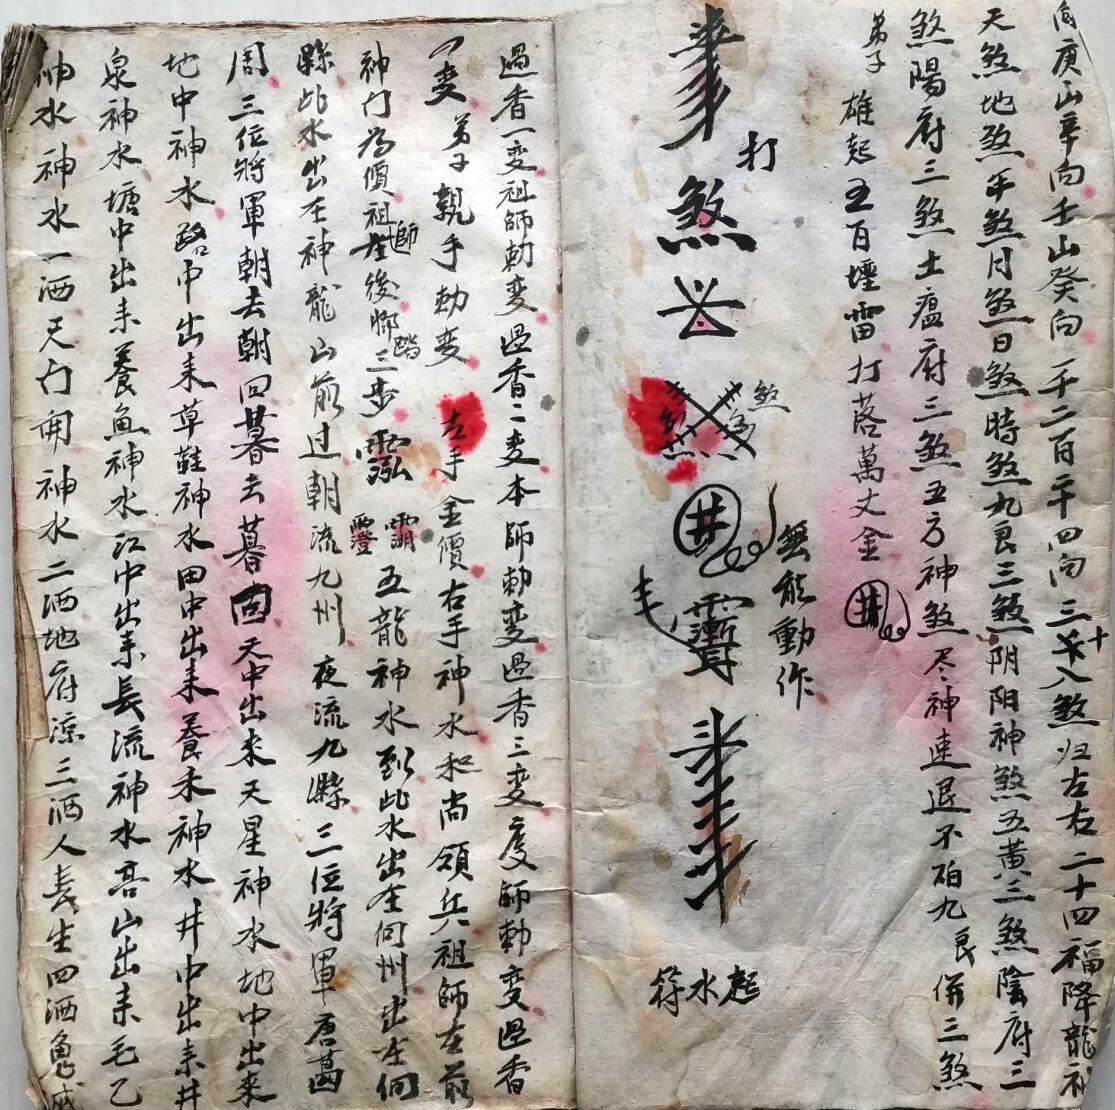 向庚山辛向壬山癸向一千二百二十四向三千入煞归左右二十四福降龍神
天煞地煞年煞月煞日煞時煞九良三煞阴阳神煞五黄三煞陰府三
煞陽府三煞土瘟府三煞五方神煞尽神速退不硧九良併三煞
弟子 雄起五百壇雷打落萬丈金井
打
煞
煞
無能動作
井
符水起
過香一变祖師勅变過香二变本師勅变過香三变度師勅变過香
一变弟子親手勅变 左手金價右手神水和尚領兵祖師左前
神門為價祖師在後將踏三步 五龍神水到此水出在何州出在何
縣此水出在神龍山前过朝流九州夜流九縣三位將軍唐葛
周三位將軍朝去朝回暮去暮回天中出来天星神水地中出来
地中神水路中出来草鞋神水田中出来養禾神水井中出来井
泉神水塘中出来養魚神水江中出来長流神水高山出来毛乙
神水神水一洒天門開神水二洒地府涼三洒人長生四洒鬼滅